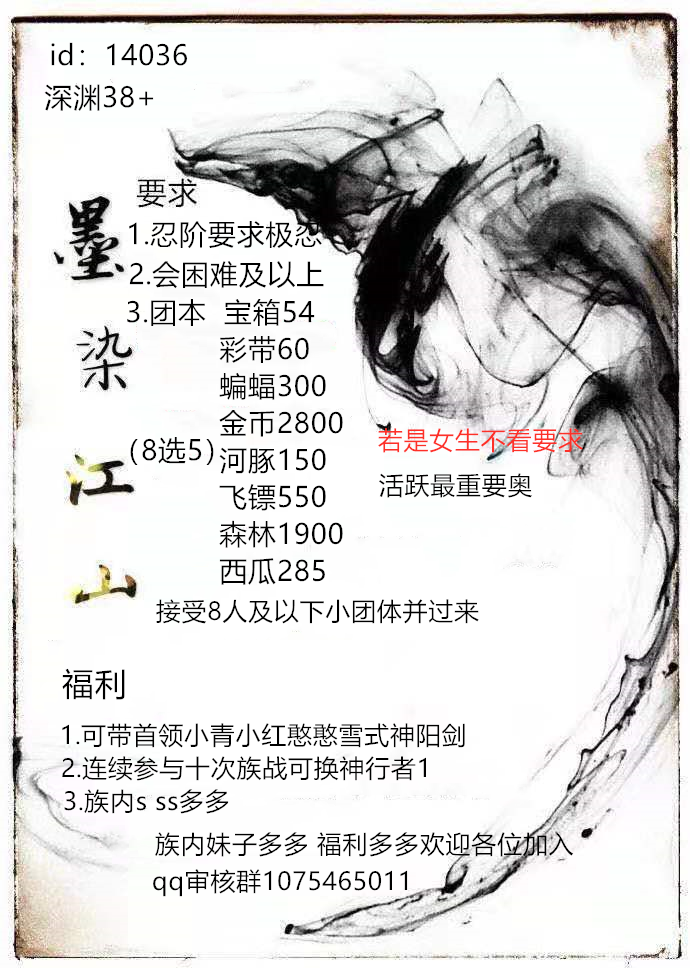 id：14036
深渊38+
墨染江山
要求
1.忍阶要求极忍
2.会困难及以上
3.团本 宝箱54
彩带60
蝙蝠300
金币2800
(8选5)
河豚150
飞镖550
森林1900
西瓜285
若是女生不看要求
活跃最重要奥
接受8人及以下小团体并过来
福利
1.可带首领小青小红憨憨雪式神阳剑
2.连续参与十次族战可换神行者1
3.族内s ss多多
族内妹子多多 福利多多欢迎各位加入
qq审核群1075465011